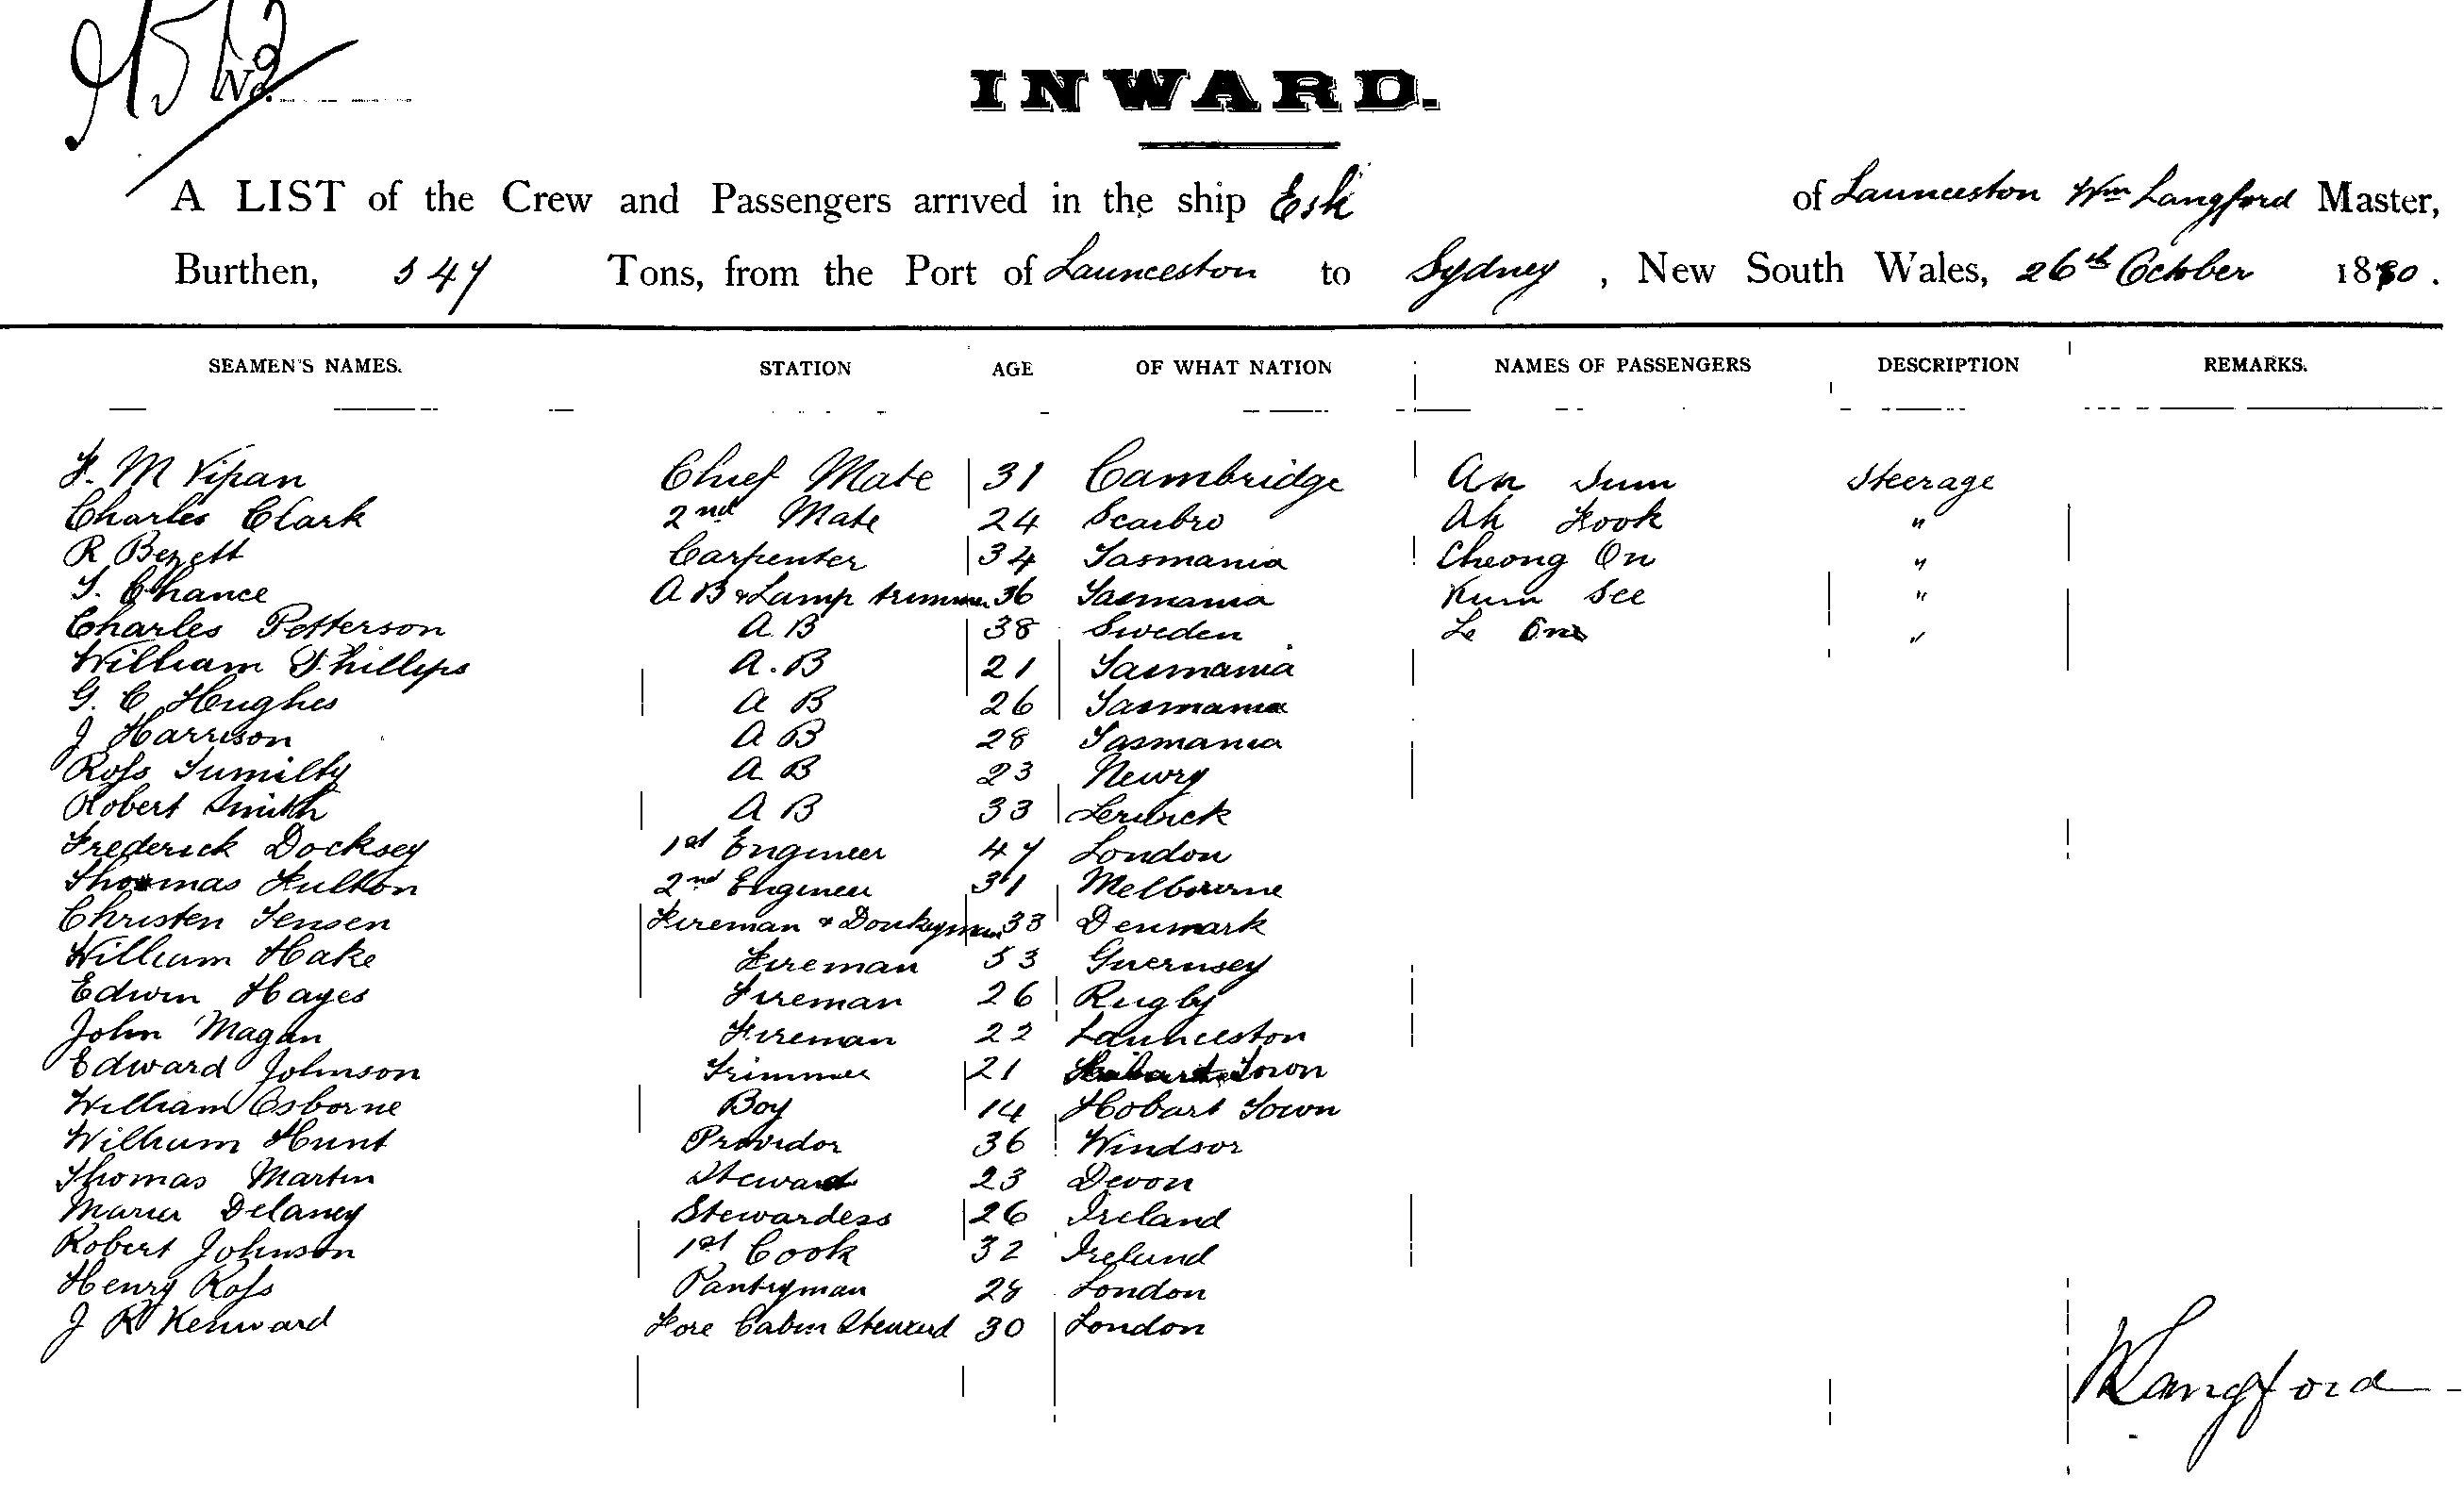 No.
INWARD.
A LIST of the Crew and Passengers arrived in the ship Esk of Launceston Wm Langford Master,
Burthen, 547 Tons, from the Port of Launceston to Sydney, New South Wales, 26th October 1880.
SEAMEN'S NAMES. STATION AGE OF WHAT NATION NAMES OF PASSENGERS DESCRIPTION REMARKS.
F. M Vipan Chief Mate 31 Cambridge Ah Sum Steerage
Charles Clark 2nd Mate 24 Scarbro Ah Fook "
R Bezett Carpenter 34 Tasmania Cheong On "
T. Chance A B & Lamp trimmer 36 Tasmania Kum See "
Charles Petterson A. B 38 Sweden Le "
William Phillips A. B 21 Tasmania
G. C Hughes A B 26 Tasmania
J Harrison A B 28 Tasmania
Ross Tumilty A B 23 Newry
Robert Smith A B 33 Lerwick
Frederick Docksey 1st Engineer 47 London
Thomas Fulton 2nd Engineer 31 Melbourne
Christen Jensen Fireman & Donkeyman 33 Denmark
William Hake Fireman 53 Guernsey
Edwin Hayes Fireman 26 Rugby
John Magan Fireman 22 Launceston
Edward Johnson Trimmer 21 Hobart Town
William Osborne Boy 14 Hobart Town
William Hunt Providor 36 Windsor
Thomas Martin Steward 23 Devon
Maria Delaney Stewardess 26 Ireland
Robert Johnson 1st Cook 32 Ireland
Henry Ross Pantryman 28 London
J R Kenward Fore Cabin Steward 30 London
W Langford